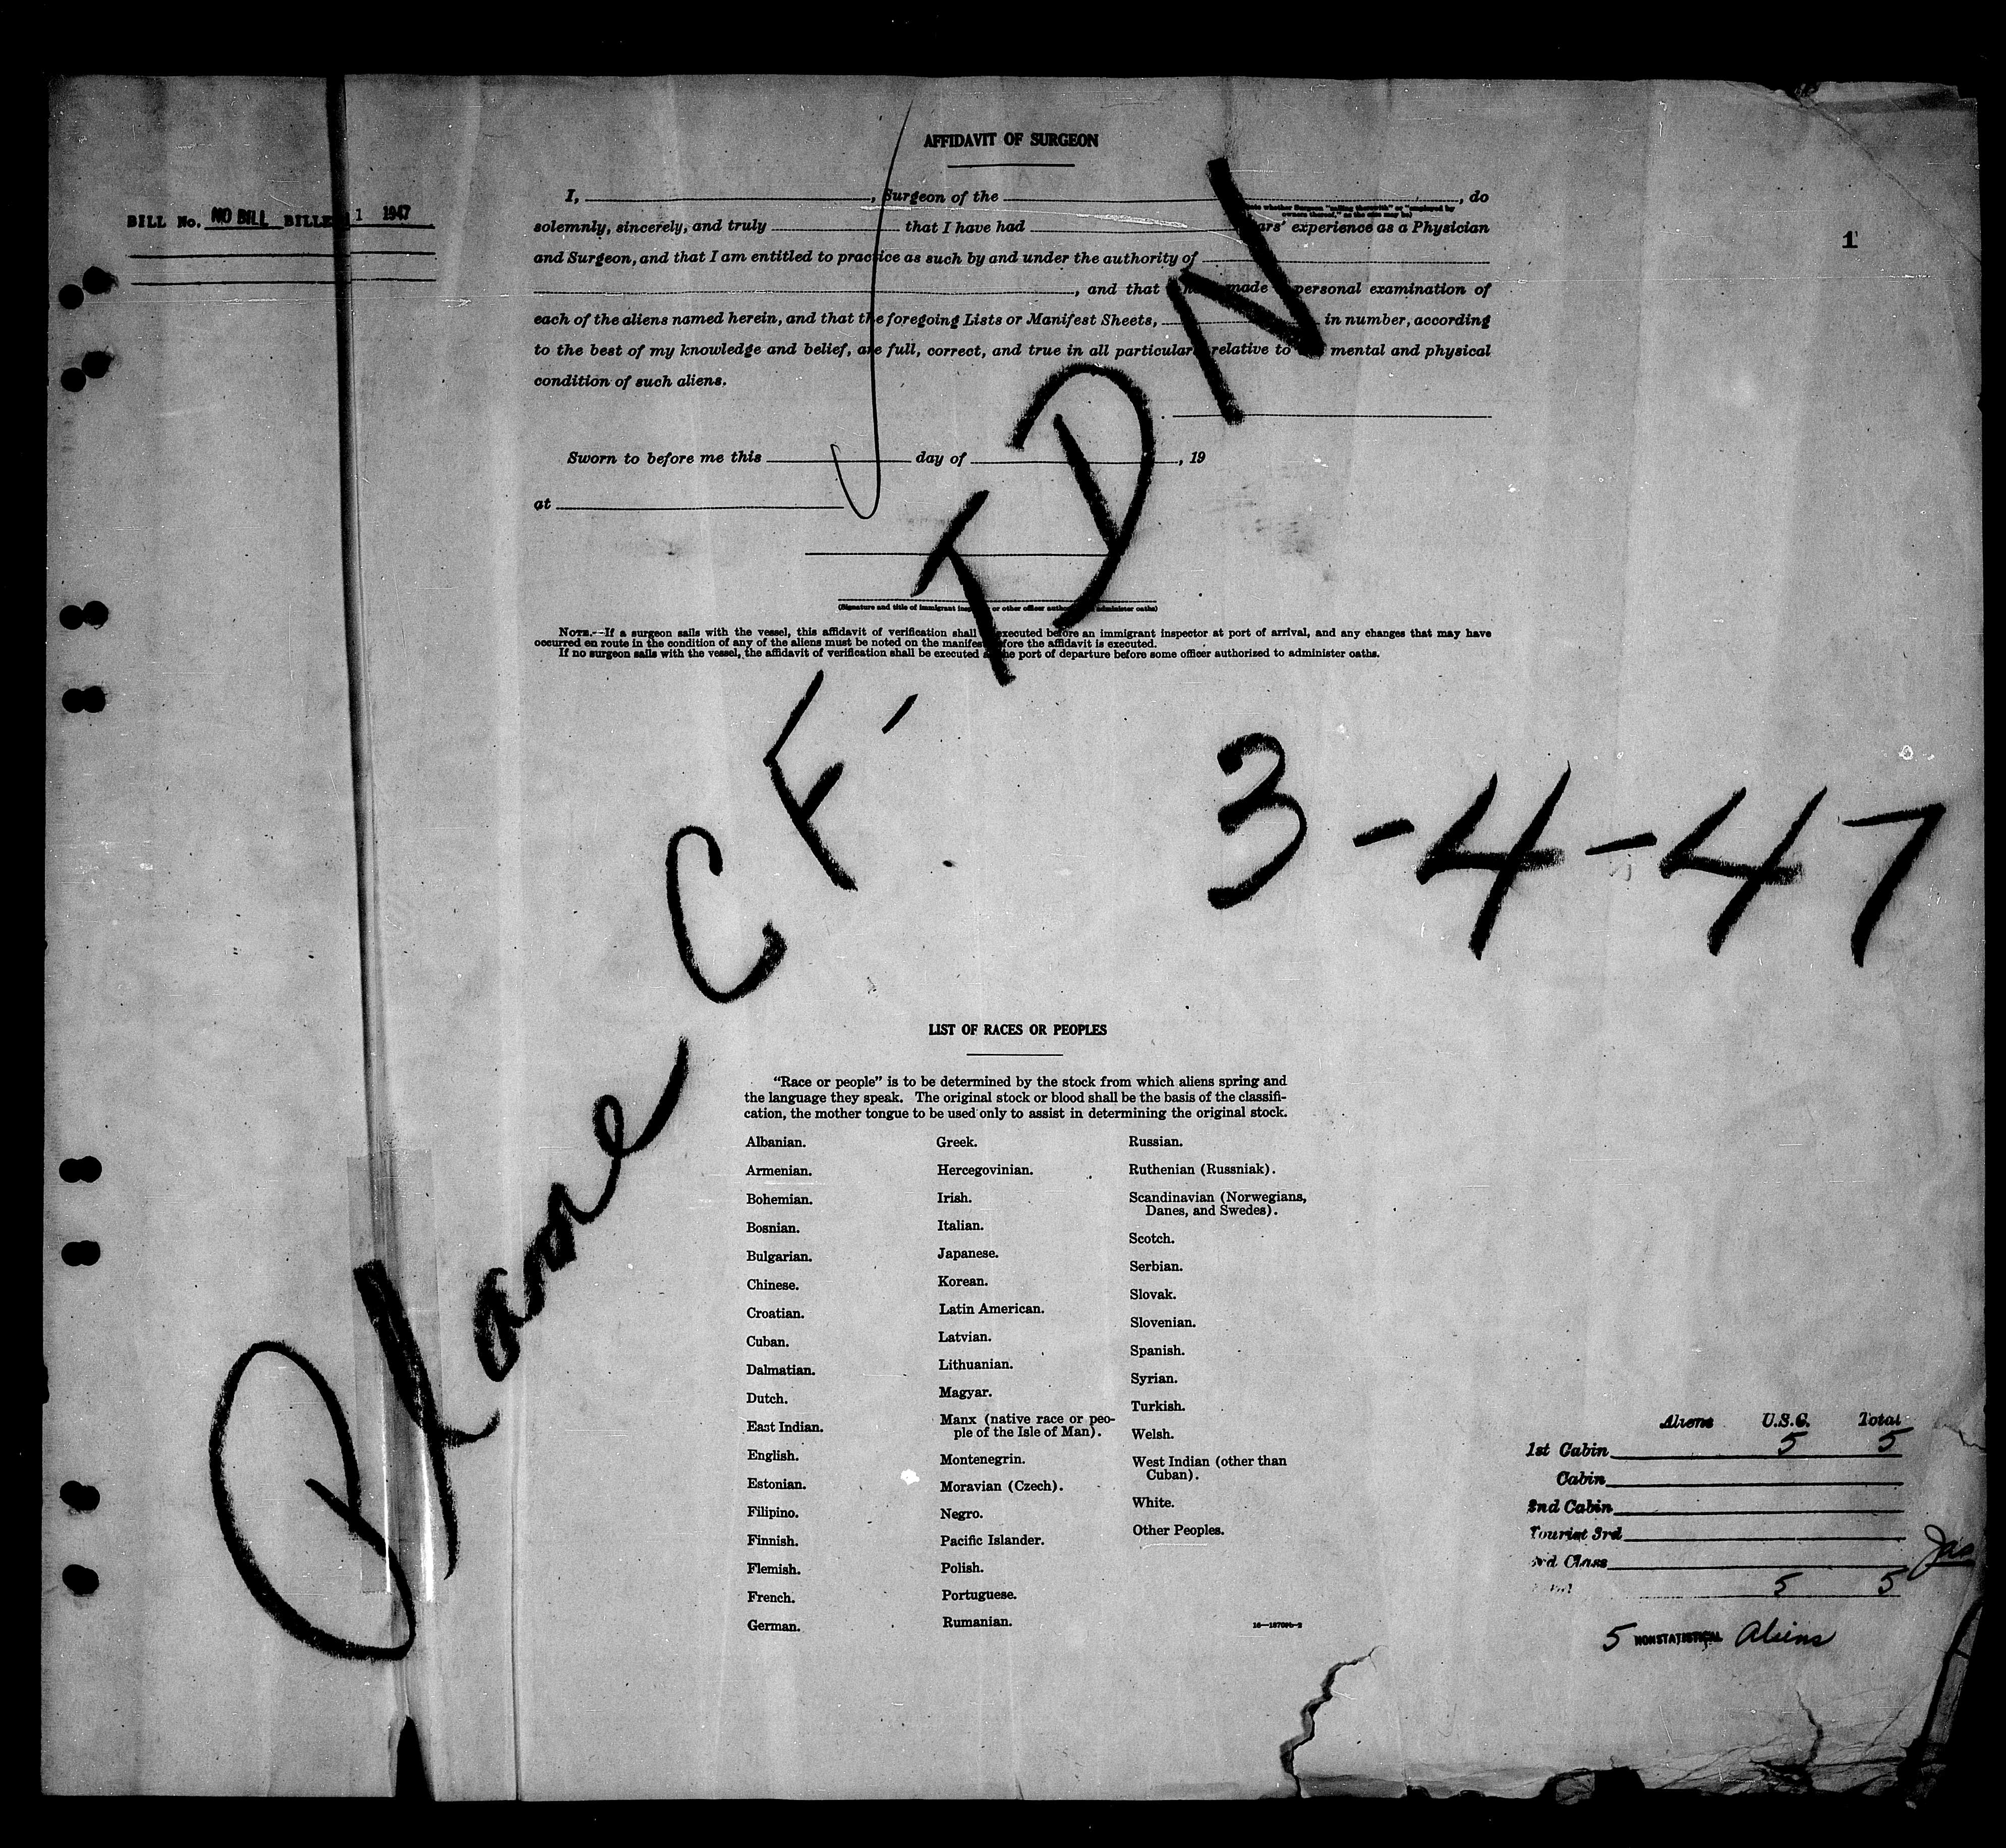 AFFIDAVIT OF SURGEON
I, , Surgeon of the , do
solemnly, sincerely, and truly that I have had experience as a Physician
and Surgeon, and that I am entitled to practice as such by and under the authority of
, and that made personal examination of
each of the aliens named herein, and that the foregoing Lists or Manifest Sheets, in number, according
to the best of my knowledge and belief, are full, correct, and true in all particulars relative to mental and physical
condition of such aliens.
Sworn to before me this day of , 19
at
(Signature and title of immigrant or other officer administer oaths)
NOTE.—If a surgeon sails with the vessel, this affidavit of verification shall executed before an immigrant inspector at port of arrival, and any changes that may have
occurred en route in the condition of any of the aliens must be noted on the manifest before the affidavit is executed.
If no surgeon sails with the vessel, the affidavit of verification shall be executed the port of departure before some officer authorized to administer oaths.
BILL No. NO BILL 1 1947
1
Plane CF-TDN
3-4-47
LIST OF RACES OR PEOPLES
"Race or people" is to be determined by the stock from which aliens spring and
the language they speak. The original stock or blood shall be the basis of the classifi-
cation, the mother tongue to be used only to assist in determining the original stock.
Albanian.
Armenian.
Bohemian.
Bosnian.
Bulgarian.
Chinese.
Croatian.
Cuban.
Dalmatian.
Dutch.
East Indian.
English.
Estonian.
Filipino.
Finnish.
Flemish.
French.
German.
Greek.
Hercegovinian.
Irish.
Italian.
Japanese.
Korean.
Latin American.
Latvian.
Lithuanian.
Magyar.
Manx (native race or peo-
ple of the Isle of Man).
Montenegrin.
Moravian (Czech).
Negro.
Pacific Islander.
Polish.
Portuguese.
Rumanian.
Russian.
Ruthenian (Russniak).
Scandinavian (Norwegians,
Danes, and Swedes).
Scotch.
Serbian.
Slovak.
Slovenian.
Spanish.
Syrian.
Turkish.
Welsh.
West Indian (other than
Cuban).
White.
Other Peoples.
Aliens U.S.C. Total
1st Cabin 5 5
Cabin
2nd Cabin
Tourist 3rd
Class
5 5
5 NONSTATISTICAL Aliens